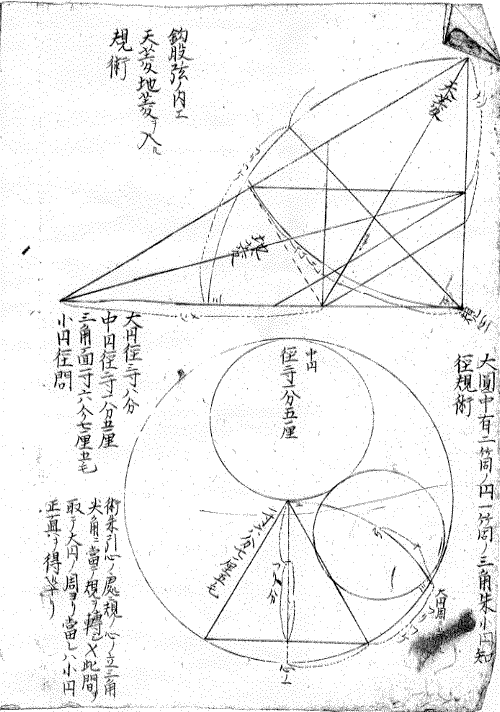 鈎股弦ノ内エ
天菱地菱ヲ入ル
規術
天菱
地菱
大圓中有二箇ノ円一箇ノ三角朱小円知
径規術
大円径三寸八分
中円径二寸一分五厘
三角面一寸六分七厘五毛
小円径問
中円
径二寸一分五厘
一寸六分七厘五毛
大円周
術朱引心ノ處規ノ心ノ立三角
尖角ニ當テ規ヲ轉シメ此間ヲ
取テ大円ノ周ヨリ當レハ小円
正真ヲ得ルナリ